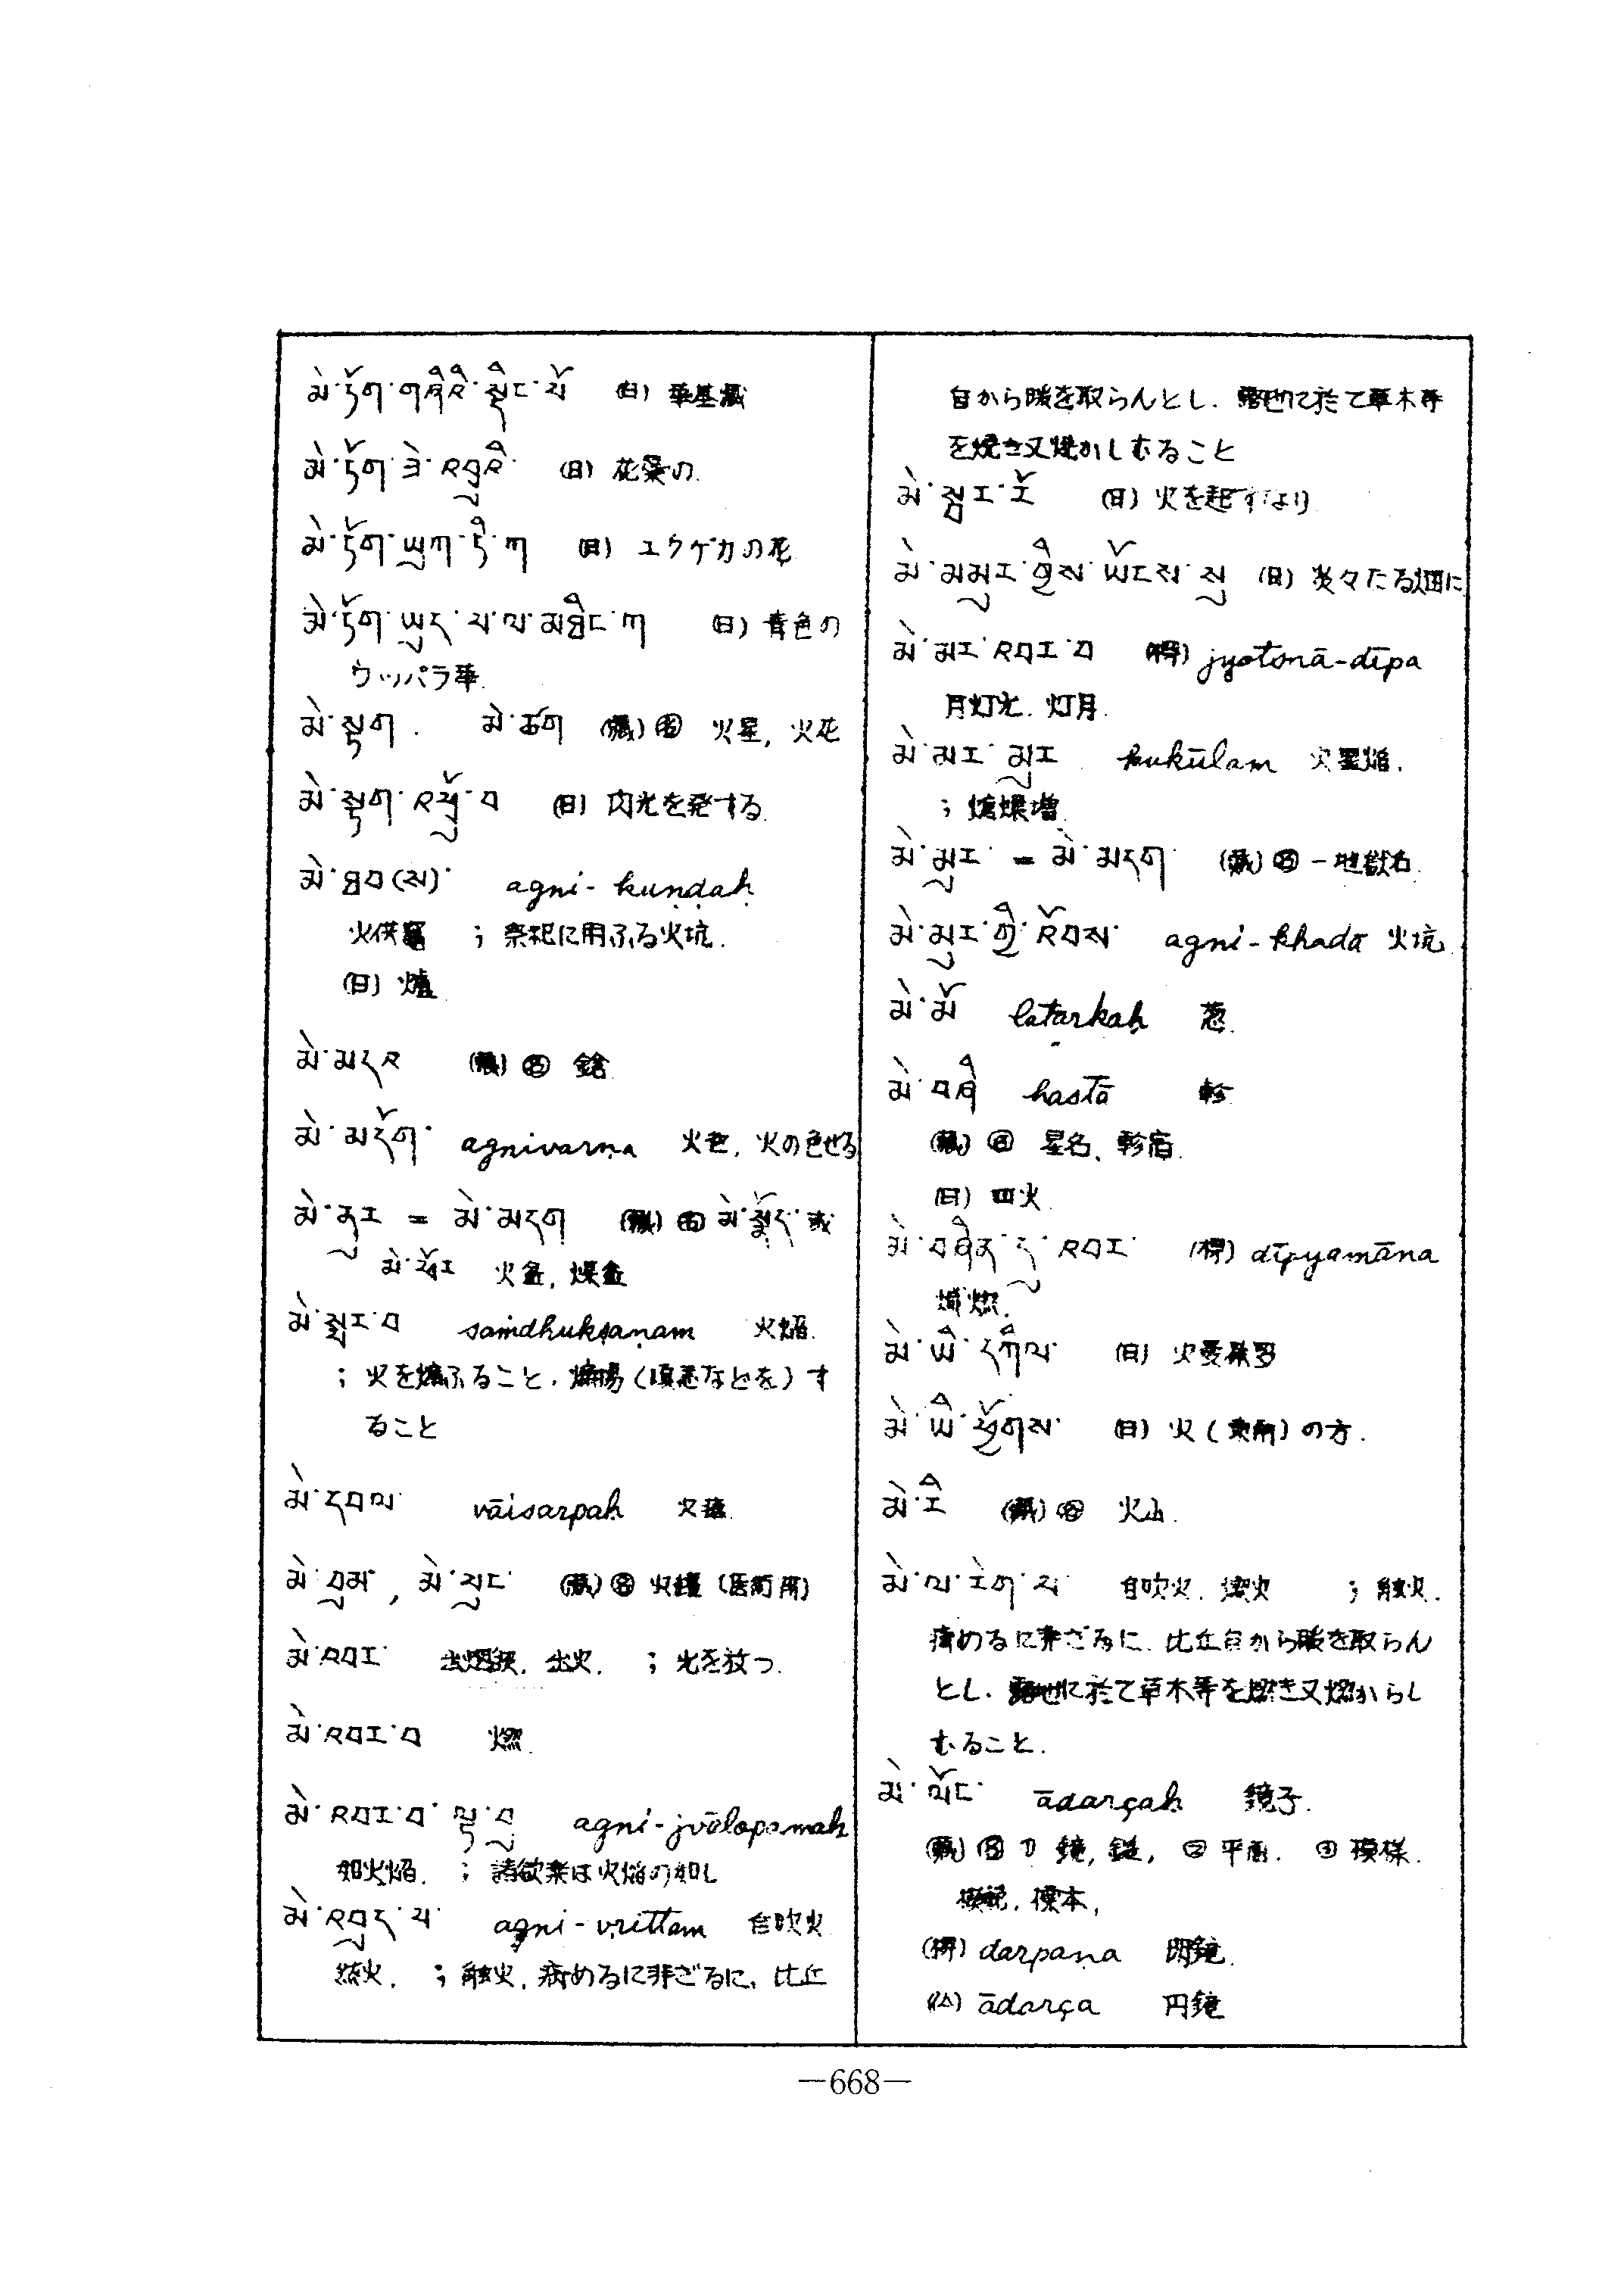 མེ་ཏོག་གཞིའི་སྙིང་པོ (日) 華基蔵
མེ་ཏོག་ཟེ་འབྲུའི་ (日) 花蘂の
མེ་ཏོག་ཡུཀ་ཏི་ཀ (日) ユクゲカの花
མེ་ཏོག་ཡུད་པ་ལ་མཐིང་ཀ (日) 青色の
ウッパラ華
མེ་སྟག . མེ་ཚག (蔵) 名 火星, 火花
མེ་སྟག་འཕྲོ་བ (日) 内光を発する
མེ་ཐབ(ས)་ agni-kuṇḍaḥ
火供 ; 祭祀に用ふる火坑.
(日) 爐
མེ་མདའ (蔵) 名 鎗
མེ་མདོག་ agnivarṇa 火色, 火の色せる
མེ་མུར = མེ་མདག (蔵) 名 或
火盆,
མེ་སྦར་བ saṁdhukṣaṇam 火焔.
; 火を煽ふること, 煽揚 (瞋恚などを) す
ること
མེ་དབལ་ vāisarpaḥ
མེ་བུམ་, མེ་པུང་ (蔵) 名 火罐 (医術用)
མེ་འབར་ 出火. ; 光を放つ.
མེ་འབར་བ 燃.
མེ་འབར་བ་ལྟ་བུ agni-jvālopamaḥ
如火焔. ; 諸欲楽は火焔の如し
མེ་འབུད་པ་ agni-vrittam 自吹火
然火. ; 触火, 病めるに非ざるに, 比丘
自から暖を取らんとし. 露地に於て草木等
を焼き又焼かしむること
མེ་སྦར་རོ (日) 火を起すなり
མེ་མམུར་གྱིས་ཡོངས་སུ (日) 炎々たる烟に
མེ་མར་འབར་བ (梵) jyotsnā-dīpa
月灯光. 灯月.
མེ་མར་མུར kukūlam
; 煻煨増
མེ་མུར་ = མེ་མདག་ (蔵) 名 一地獄名
མེ་མུར་གྱི་འོབས་ agni-khadā 火坑
མེ་མོ latarkaḥ 葱.
མེ་བཞི hastā 軫
(蔵) 名 星名, 軫宿
(日) 四火
མེ་བཞིན་དུ་འབར་ (梵) dīpyamāna
熾燃.
མེ་ཡི་དཀྱིལ་ (日) 火曼荼羅
མེ་ཡི་ཕྱོགས་ (日) 火 (東南) の方.
མེ་རི (蔵) 名 火山.
མེ་ལ་རེག་པ་ 自吹火. 燃火 ; 触火.
病めるに非ざるに, 比丘自から暖を取らん
とし. 露地に於て草木等を燃き又燃からし
むること.
མེ་ལོང་ ādarçaḥ 鏡子.
(蔵) 名 ① 鏡, ② 平面. ③ 模様.
模範. 標本,
(梵) darpaṇa 明鏡.
ādarça 円鏡
—668—